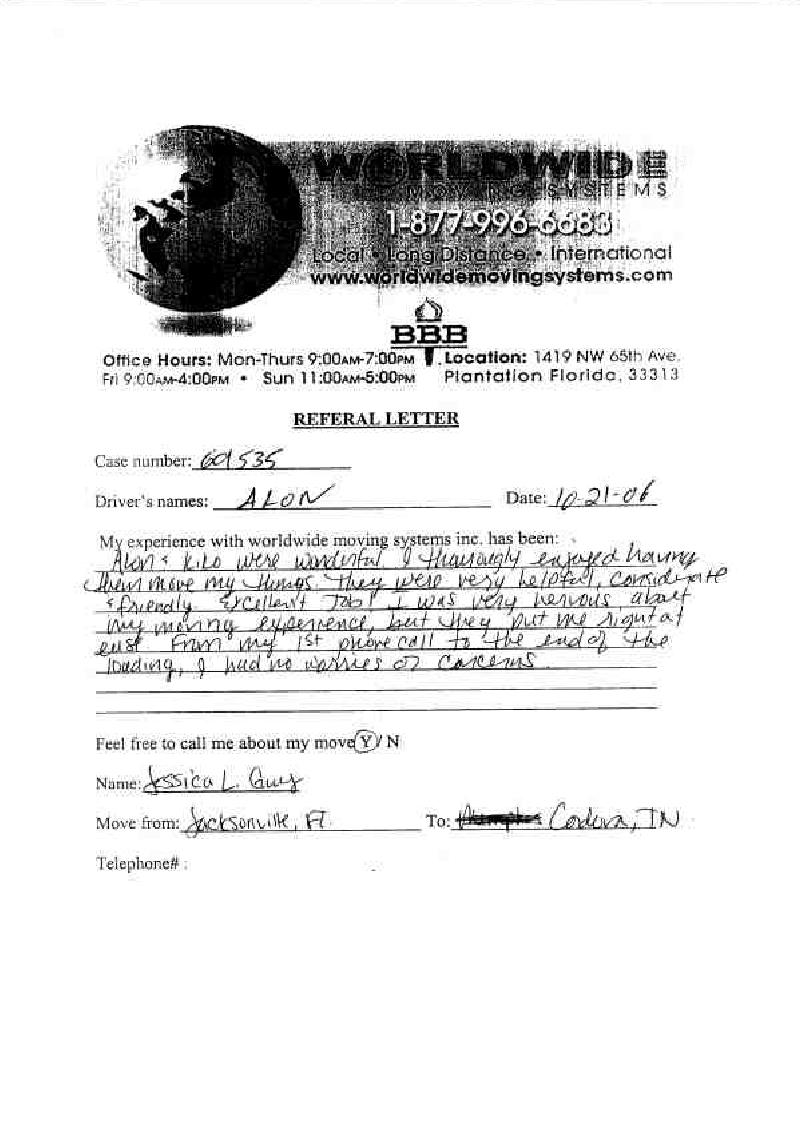 WORLDWIDE
MOVING SYSTEMS
1-877-996-6683
Local • Long Distance • International
www.worldwidemovingsystems.com
BBB
Office Hours: Mon-Thurs 9:00AM-7:00PM
Fri 9:00AM-4:00PM • Sun 11:00AM-5:00PM
Location: 1419 NW 65th Ave.
Plantation Florida, 33313
REFERAL LETTER
Case number: 601535
Driver's names: ALON Date: 10-21-06
My experience with worldwide moving systems inc. has been:
Alon & Kiko were wonderful I thouroughly enjoyed having
them move my things. They were very helpful, considerate
& friendly Excellent Job! I was very nervous about
my moving experience, but they put me right at
ease From my 1st phone call to the end of the
loading, I had no worries or concerns
Feel free to call me about my move Y / N
Name: Jessica L.
Move from: Jacksonville, Fl To: Cordova, TN
Telephone# :